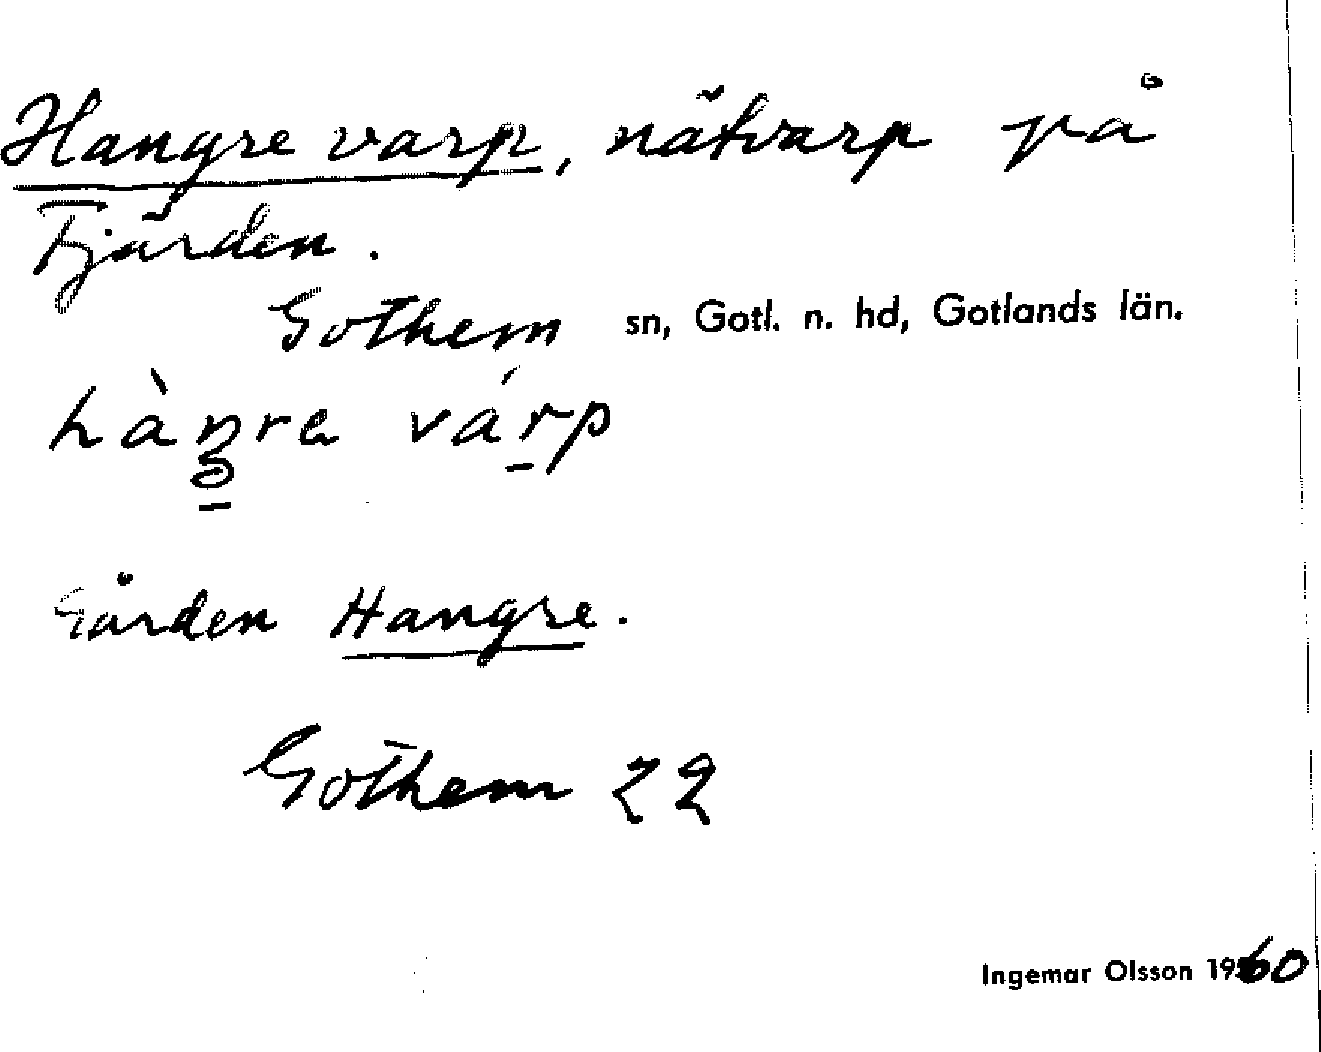 Hangre varp, nätvarp på
Fjärden.
Gothem sn, Gotl. n. hd, Gotlands län.
hàŋre várp
Gården Hangre.
Gothem 22
Ingemar Olsson 1960